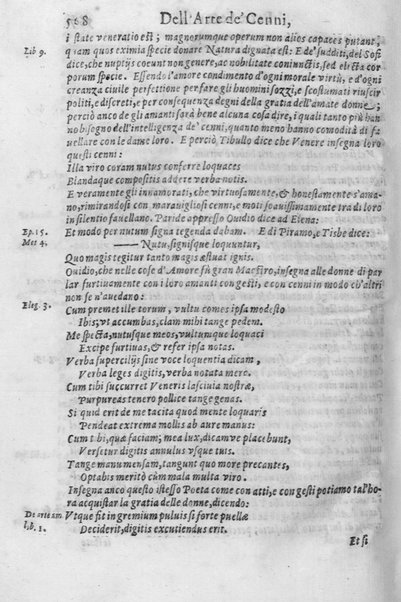 568 Dell'Arte de' Cenni,
i state veneratio est; magnorumque operum non alios capaces putant,
Lib 9. quam quos eximia specie donare Natura dignata est: E de' sudditi, del Sofi
dice, che nuptijs coeunt non genere, ac nobilitate coniunctis, sed electa cor
porum specie. Essendo l'amore condimento d'ogni morale virtù, e d'ogni
creanza ciuile perfettione per far gli huomini sozzi, e scostumati riuscir
politi, e discreti, e per consequenza degni della gratia dell'amate donne;
perciò anco de gli amanti sarà bene alcuna cosa dire, i quali tanto più han
no bisogno dell'intelligenza de' cenni, quanto meno hanno comodità di fa
uellare con le dame loro. E perciò Tibullo dice che Venere insegna loro
questi cenni:
Illa viro coram nutus conferre loquaces
Blandaque compositis addere verba notis.
E veramente gli innamorati, che virtuosamente, & honestamente s'ama
no, rimirandosi con marauigliosi cenni, e moti soauissimamente tra di loro
in silentio fauellano. Paride appresso Ouidio dice ad Elena:
Ep. 15. Et modo per nutum signa tegenda dabam. E di Piramo, e Tisbe dice:
Met 4. —— Nutu, signisque loquuntur,
Quo magis tegitur tanto magis æstuat ignis.
Ouidio, che nelle cose d'Amore fù gran Maestro, insegna alle donne di par
lar furtiuamente con i loro amanti con gesti, e con cenni in modo ch'altri
non se n'auedano:
Eleg. 3. Cum premet ille torum, vultu comes ipsa modesto
Ibis, vt accumbas, clam mihi tange pedem.
Me specta, nutusque meos, vultumque loquaci
Excipe furtiuas, & refer ipsa notas.
Verba supercilijs sine voce loquentia dicam,
Verba leges digitis, verba notata mero.
Cum tibi succurret Veneris lasciuia nostræ,
Purpureas tenero pollice tange genas.
Si quid erit de me tacita quod mente loquaris
Pendeat extrema mollis ab aure manus:
Cum tibi, quæ faciam; mea lux, dicamve placebunt,
Versetur digitis annulus vsque tuis.
Tange manu mensam, tangunt quo more precantes,
Optabis meritò cùm mala multa viro.
Insegna anco questo istesso Poeta come con atti, e con gesti potiamo tal'ho
ra acquistar la gratia delle donne, dicendo:
De arte am. Vtque fit in gremium puluis si forte puellæ
lib. 1. Deciderit, digitis excutiendus erit.
Et si